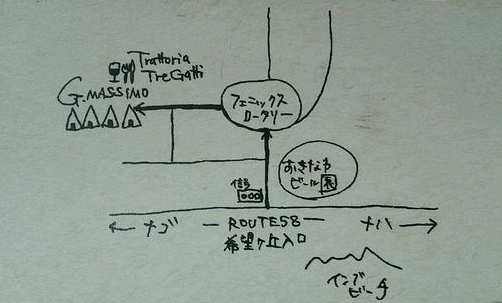 Trattoria
TreGatti
G.MASSIMO
フェニックス
ロータリー
おきなわ
ビール
信号
← ナゴ
ROUTE58
ナハ →
希望ヶ丘入口
インブ
ビーチ